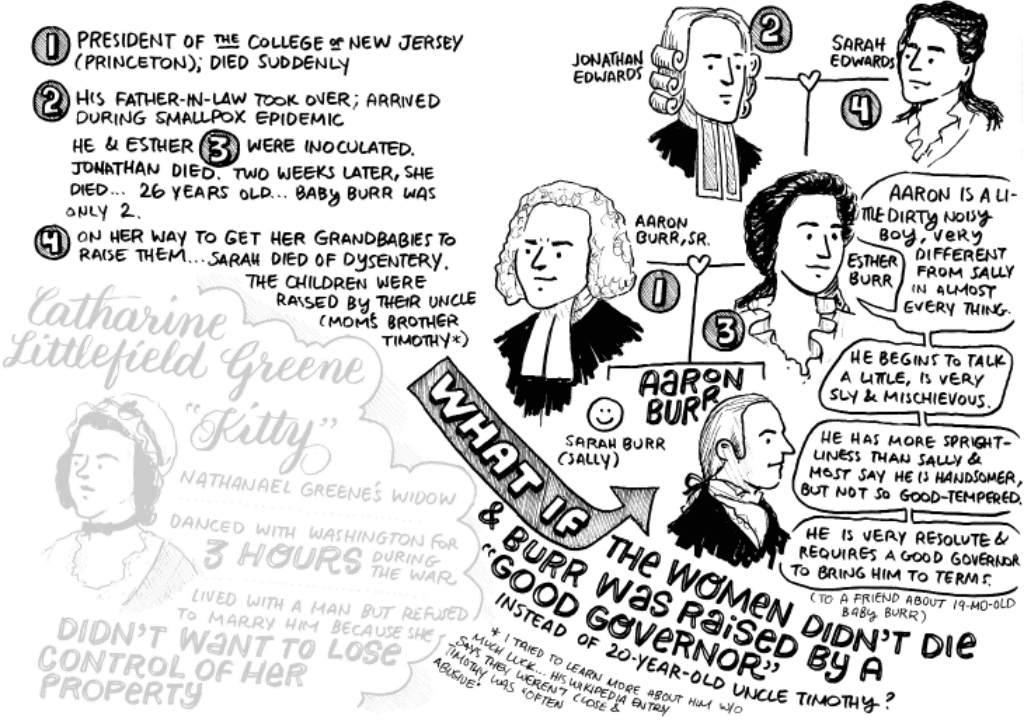 1 PRESIDENT OF THE COLLEGE OF NEW JERSEY
(PRINCETON); DIED SUDDENLY
2 HIS FATHER-IN-LAW TOOK OVER; ARRIVED
DURING SMALLPOX EPIDEMIC
HE & ESTHER 3 WERE INOCULATED.
JONATHAN DIED. TWO WEEKS LATER, SHE
DIED... 26 YEARS OLD... BABY BURR WAS
ONLY 2.
4 ON HER WAY TO GET HER GRANDBABIES TO
RAISE THEM... SARAH DIED OF DYSENTERY.
THE CHILDREN WERE
RAISED BY THEIR UNCLE
(MOM'S BROTHER
TIMOTHY*)
Catharine
Littlefield Greene
"Kitty"
NATHANAEL GREENE'S WIDOW
DANCED WITH WASHINGTON FOR
3 HOURS DURING
THE WAR
LIVED WITH A MAN BUT REFUSED
TO MARRY HIM BECAUSE SHE
DIDN'T WANT TO LOSE
CONTROL OF HER
PROPERTY
JONATHAN
EDWARDS
2
SARAH
EDWARDS
4
AARON
BURR, SR.
1
ESTHER
BURR
3
AARON IS A LI-
TTLE DIRTY NOISY
BOY, VERY
DIFFERENT
FROM SALLY
IN ALMOST
EVERY THING.
HE BEGINS TO TALK
A LITTLE, IS VERY
SLY & MISCHIEVOUS.
HE HAS MORE SPRIGHT-
LINESS THAN SALLY &
MOST SAY HE IS HANDSOMER,
BUT NOT SO GOOD-TEMPERED.
HE IS VERY RESOLUTE &
REQUIRES A GOOD GOVERNOR
TO BRING HIM TO TERMS.
(TO A FRIEND ABOUT 19-MO-OLD
BABY BURR)
AARON
BURR
SARAH BURR
(SALLY)
WHAT IF
THE WOMEN DIDN'T DIE
& BURR WAS RAISED BY A
"GOOD GOVERNOR"
INSTEAD OF 20-YEAR-OLD UNCLE TIMOTHY?
* I TRIED TO LEARN MORE ABOUT HIM W/O
MUCH LUCK... HIS WIKIPEDIA ENTRY
SAYS THEY WEREN'T CLOSE &
TIMOTHY WAS "OFTEN
ABUSIVE"